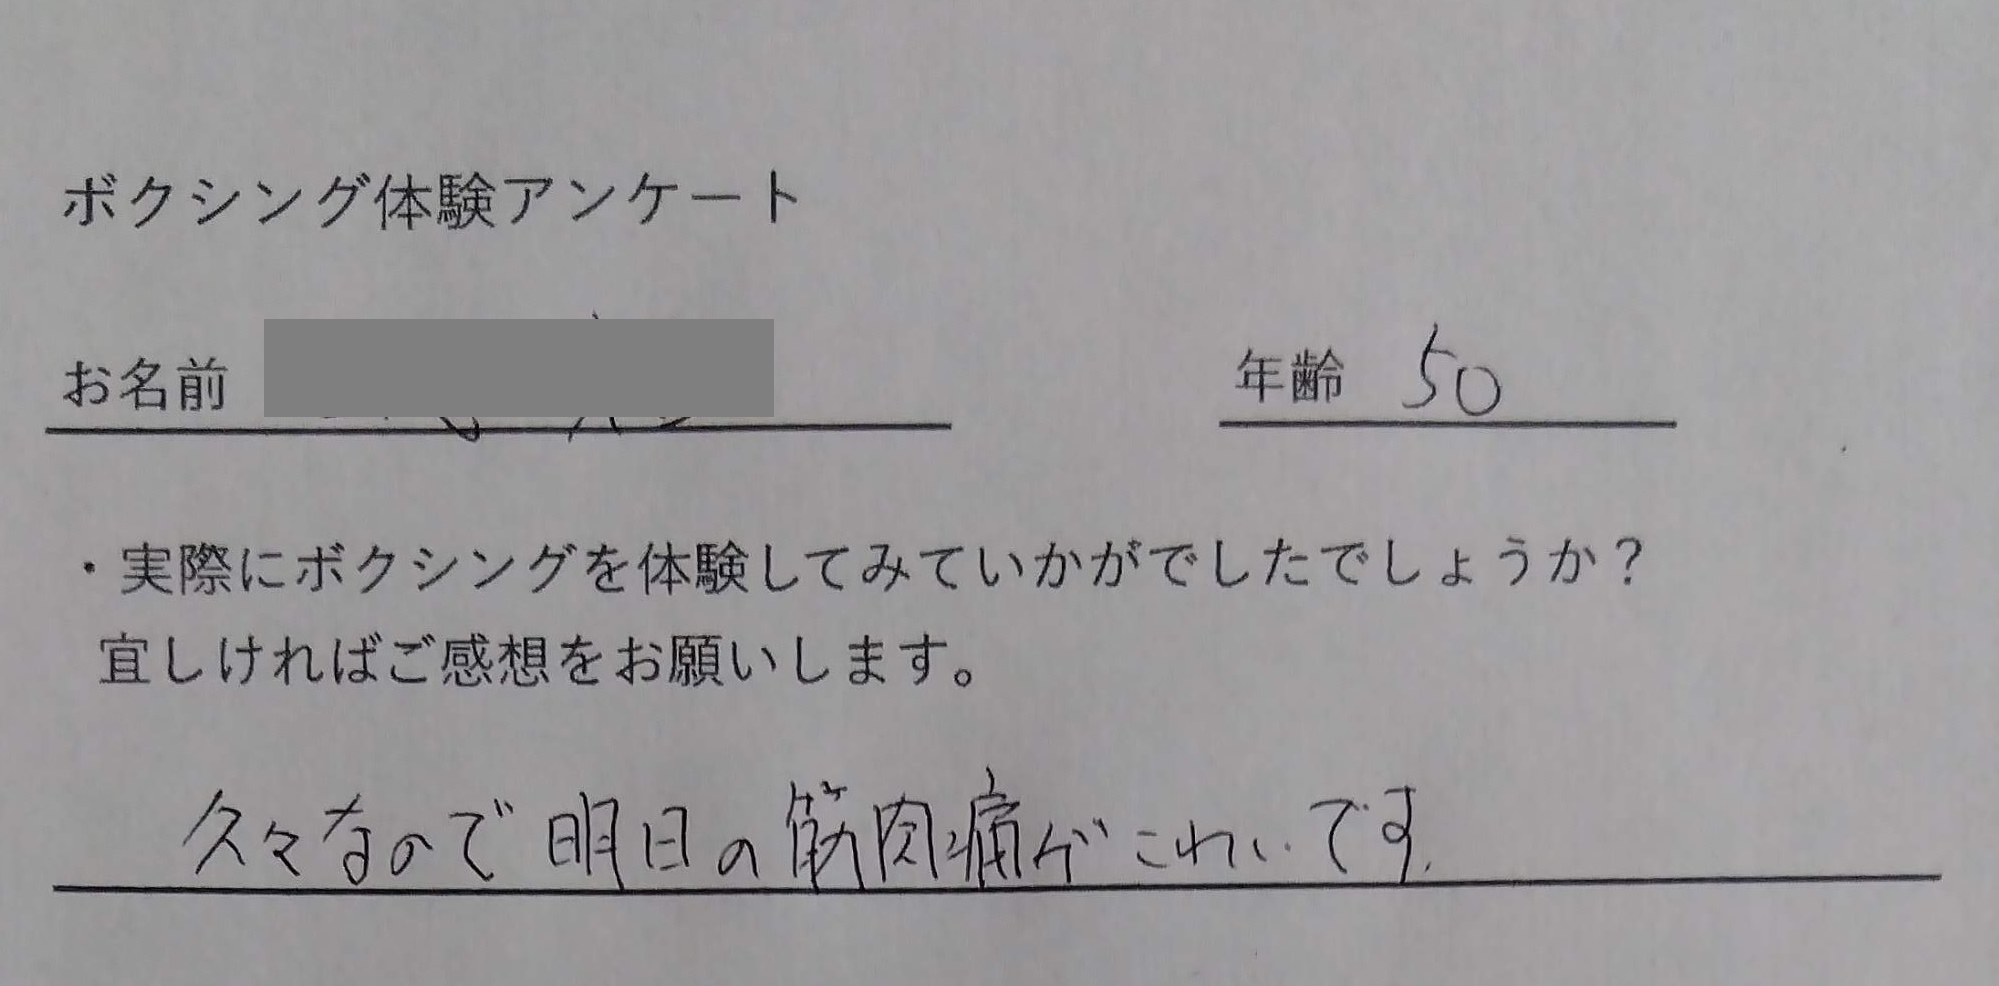 ボクシング体験アンケート
お名前 年齢 50
・実際にボクシングを体験してみていかがでしたでしょうか？
宜しければご感想をお願いします。
久々なので明日の筋肉痛がこわいです.